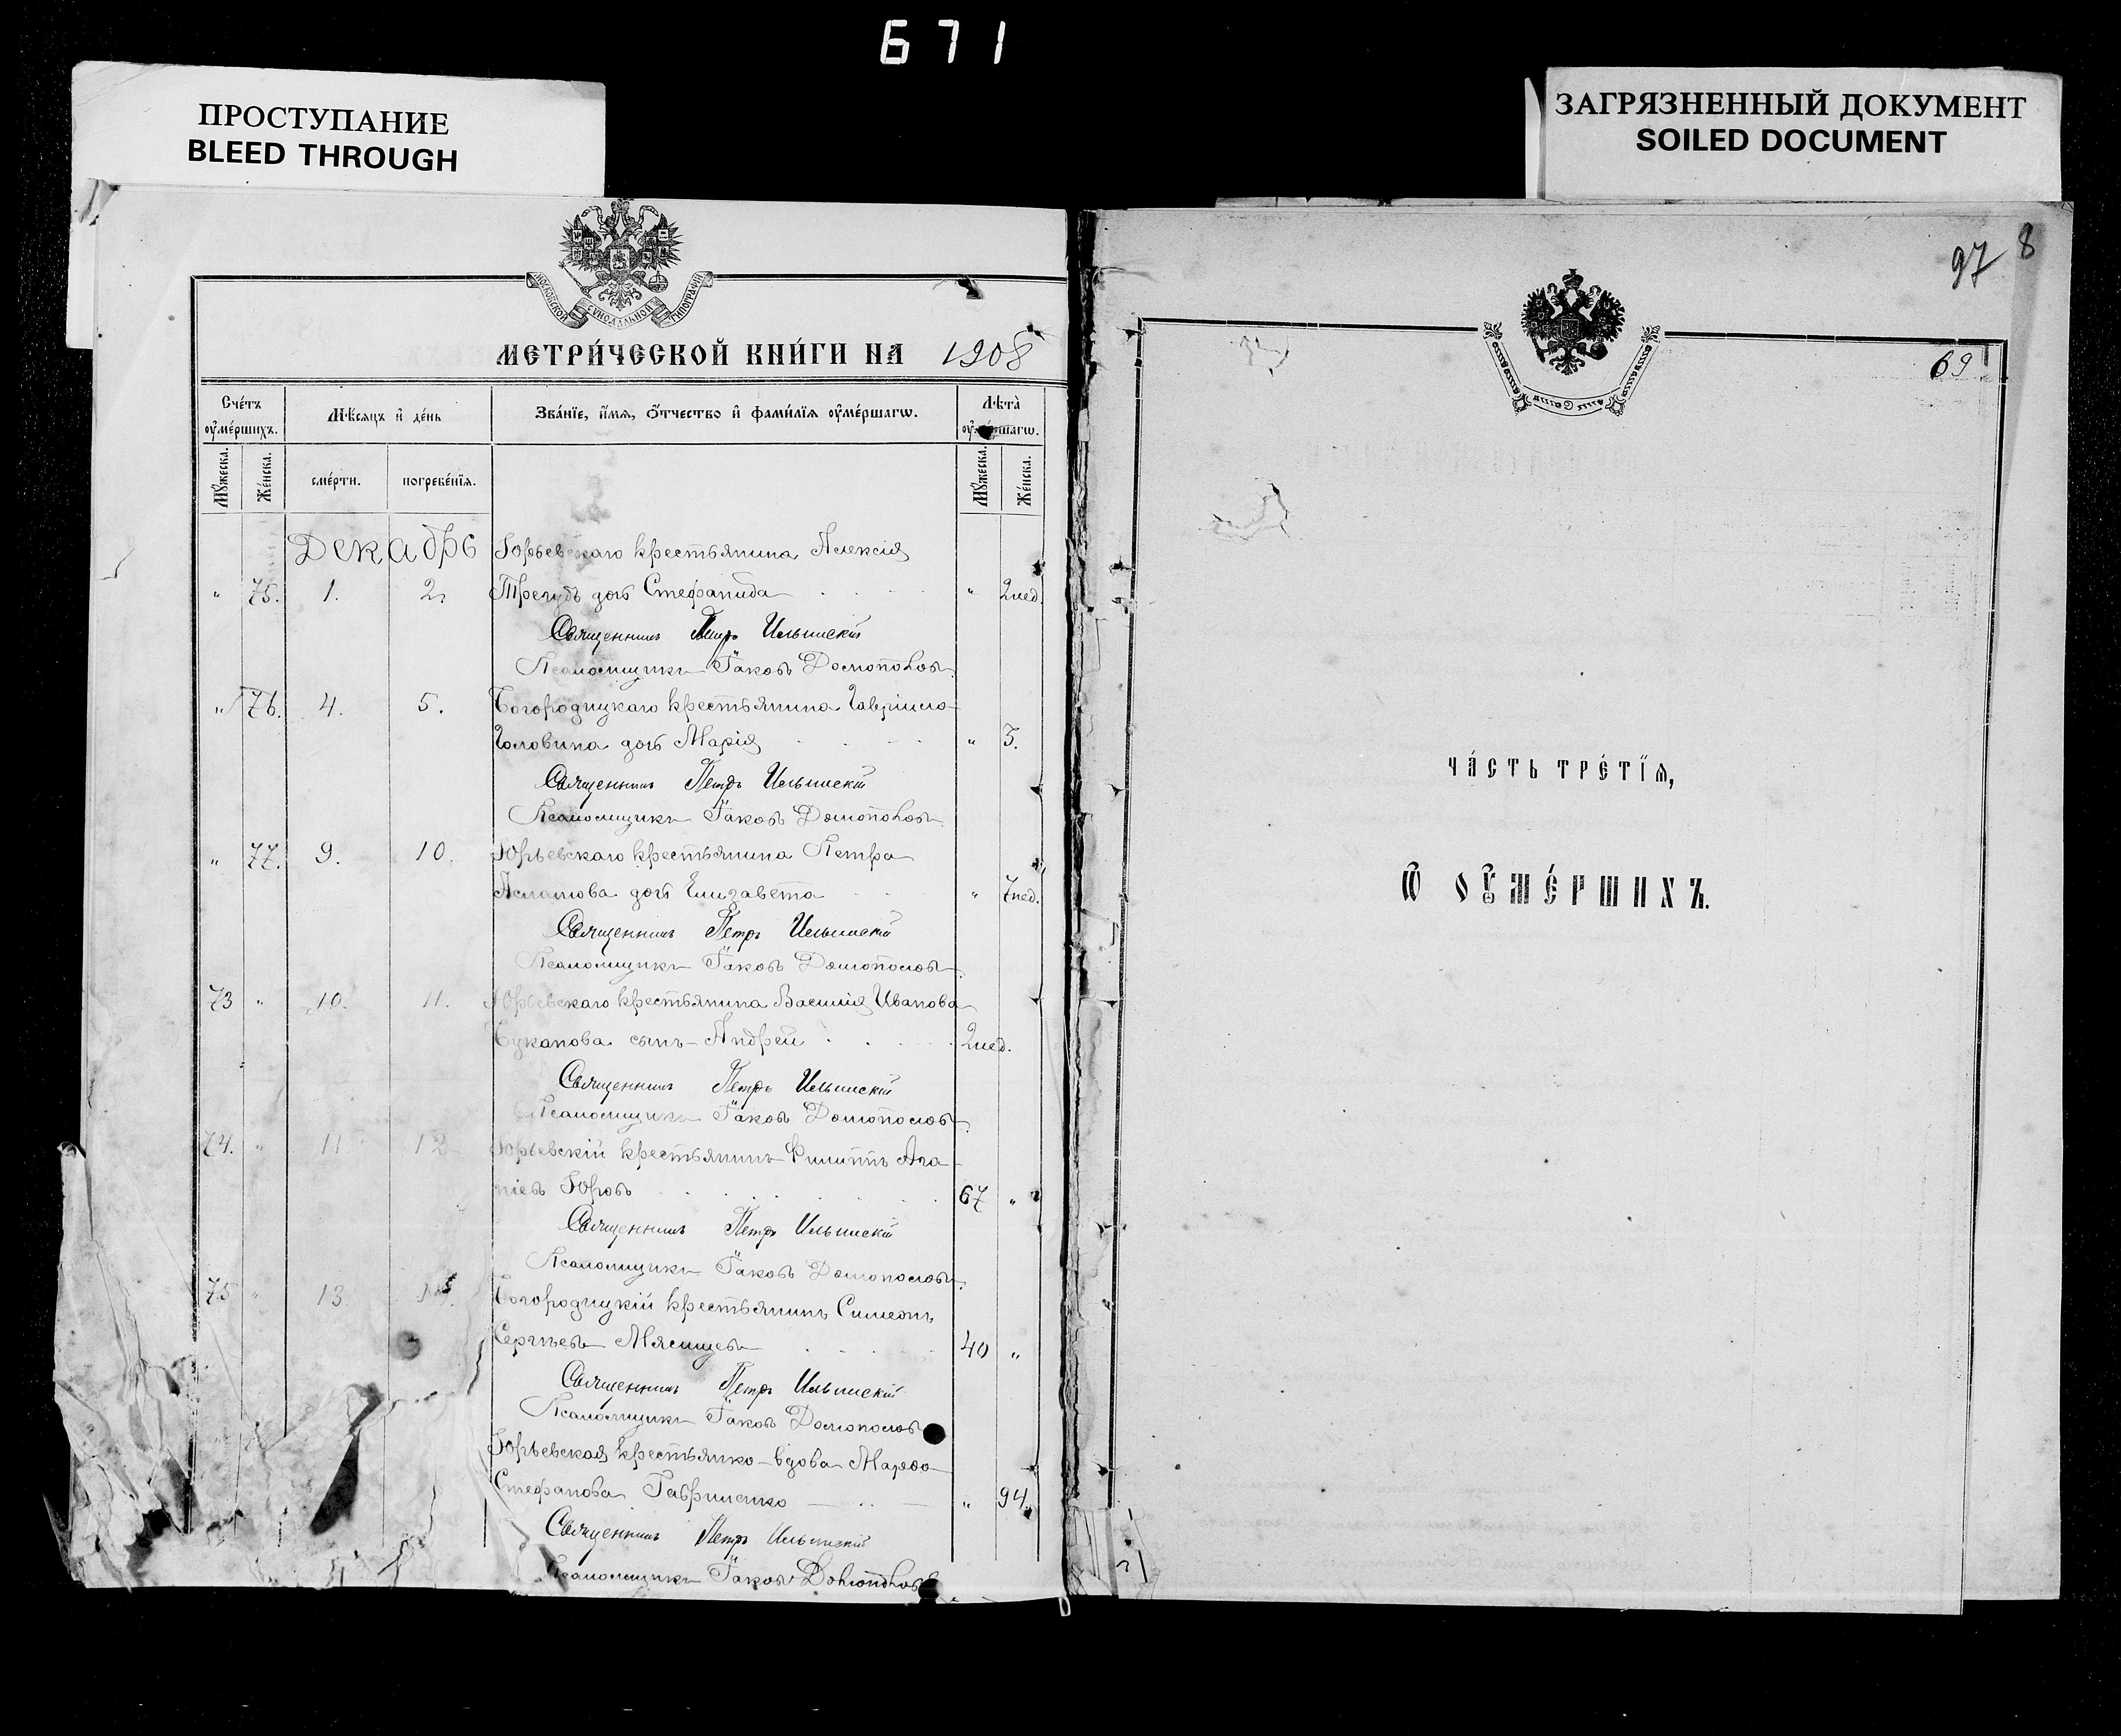 671
ПРОСТУПАНИЕ
BLEED THROUGH
ЗАГРЯЗНЕННЫЙ ДОКУМЕНТ
SOILED DOCUMENT
МОСКОВСКОЙ СѴНОДАЛЬНОЙ ТИПОГРАФІИ
МЕТРИ́ЧЕСКОЙ КНИ́ГИ НА 1908
Сче́тъ оу҆ме́ршихъ.
Мѣ́сяцъ и҆ де́нь
Зва́нїе, и҆́мѧ, ѻ҆́тчество и҆ фами́лїѧ оу҆ме́ршагѡ.
Лѣта̀ оу҆ме́ршагѡ.
Мꙋ́жеска.
Же́нска.
сме́рти.
погребе́нїѧ.
Мꙋ́жеска.
Же́нска.
Декабрь
Юрьевскаго крестьянина Алексія
" 75. 1. 2. дочь Стефанида " 2 нед.
Священникъ Петръ Ильинскій
Псаломщикъ Іаковъ Домополовъ
" 76. 4. 5. Богородицкаго крестьянина Гавріила
Головина дочь Марія " 3.
Священникъ Петръ Ильинскій
Псаломщикъ Іаковъ Домополовъ
" 77. 9. 10. Юрьевскаго крестьянина Петра
дочь Елизавета " 7 нед.
Священникъ Петръ Ильинскій
Псаломщикъ Іаковъ Домополовъ
73 " 10. 11. Юрьевскаго крестьянина Василія Иванова
сынъ Андрей 2 нед.
Священникъ Петръ Ильинскій
Псаломщикъ Іаковъ Домополовъ
74. " 11 12 Юрьевскій крестьянинъ Филиппъ Ага
піевъ 67 "
Священникъ Петръ Ильинскій
Псаломщикъ Іаковъ Домополовъ
75 " 13 Богородицкій крестьянинъ Симеонъ
Сергѣевъ Мясищевъ 40 "
Священникъ Петръ Ильинскій
Псаломщикъ Іаковъ Домополовъ
Юрьевская крестьянка-вдова Марѳа
Стефанова Гавриленко " 94.
Священникъ Петръ Ильинскій
Псаломщикъ Іаковъ Домополовъ
97 8
69
ЧА́СТЬ ТРЕ́ТЇѦ,
Ѽ ОУ҆МЕ́РШИХЪ.